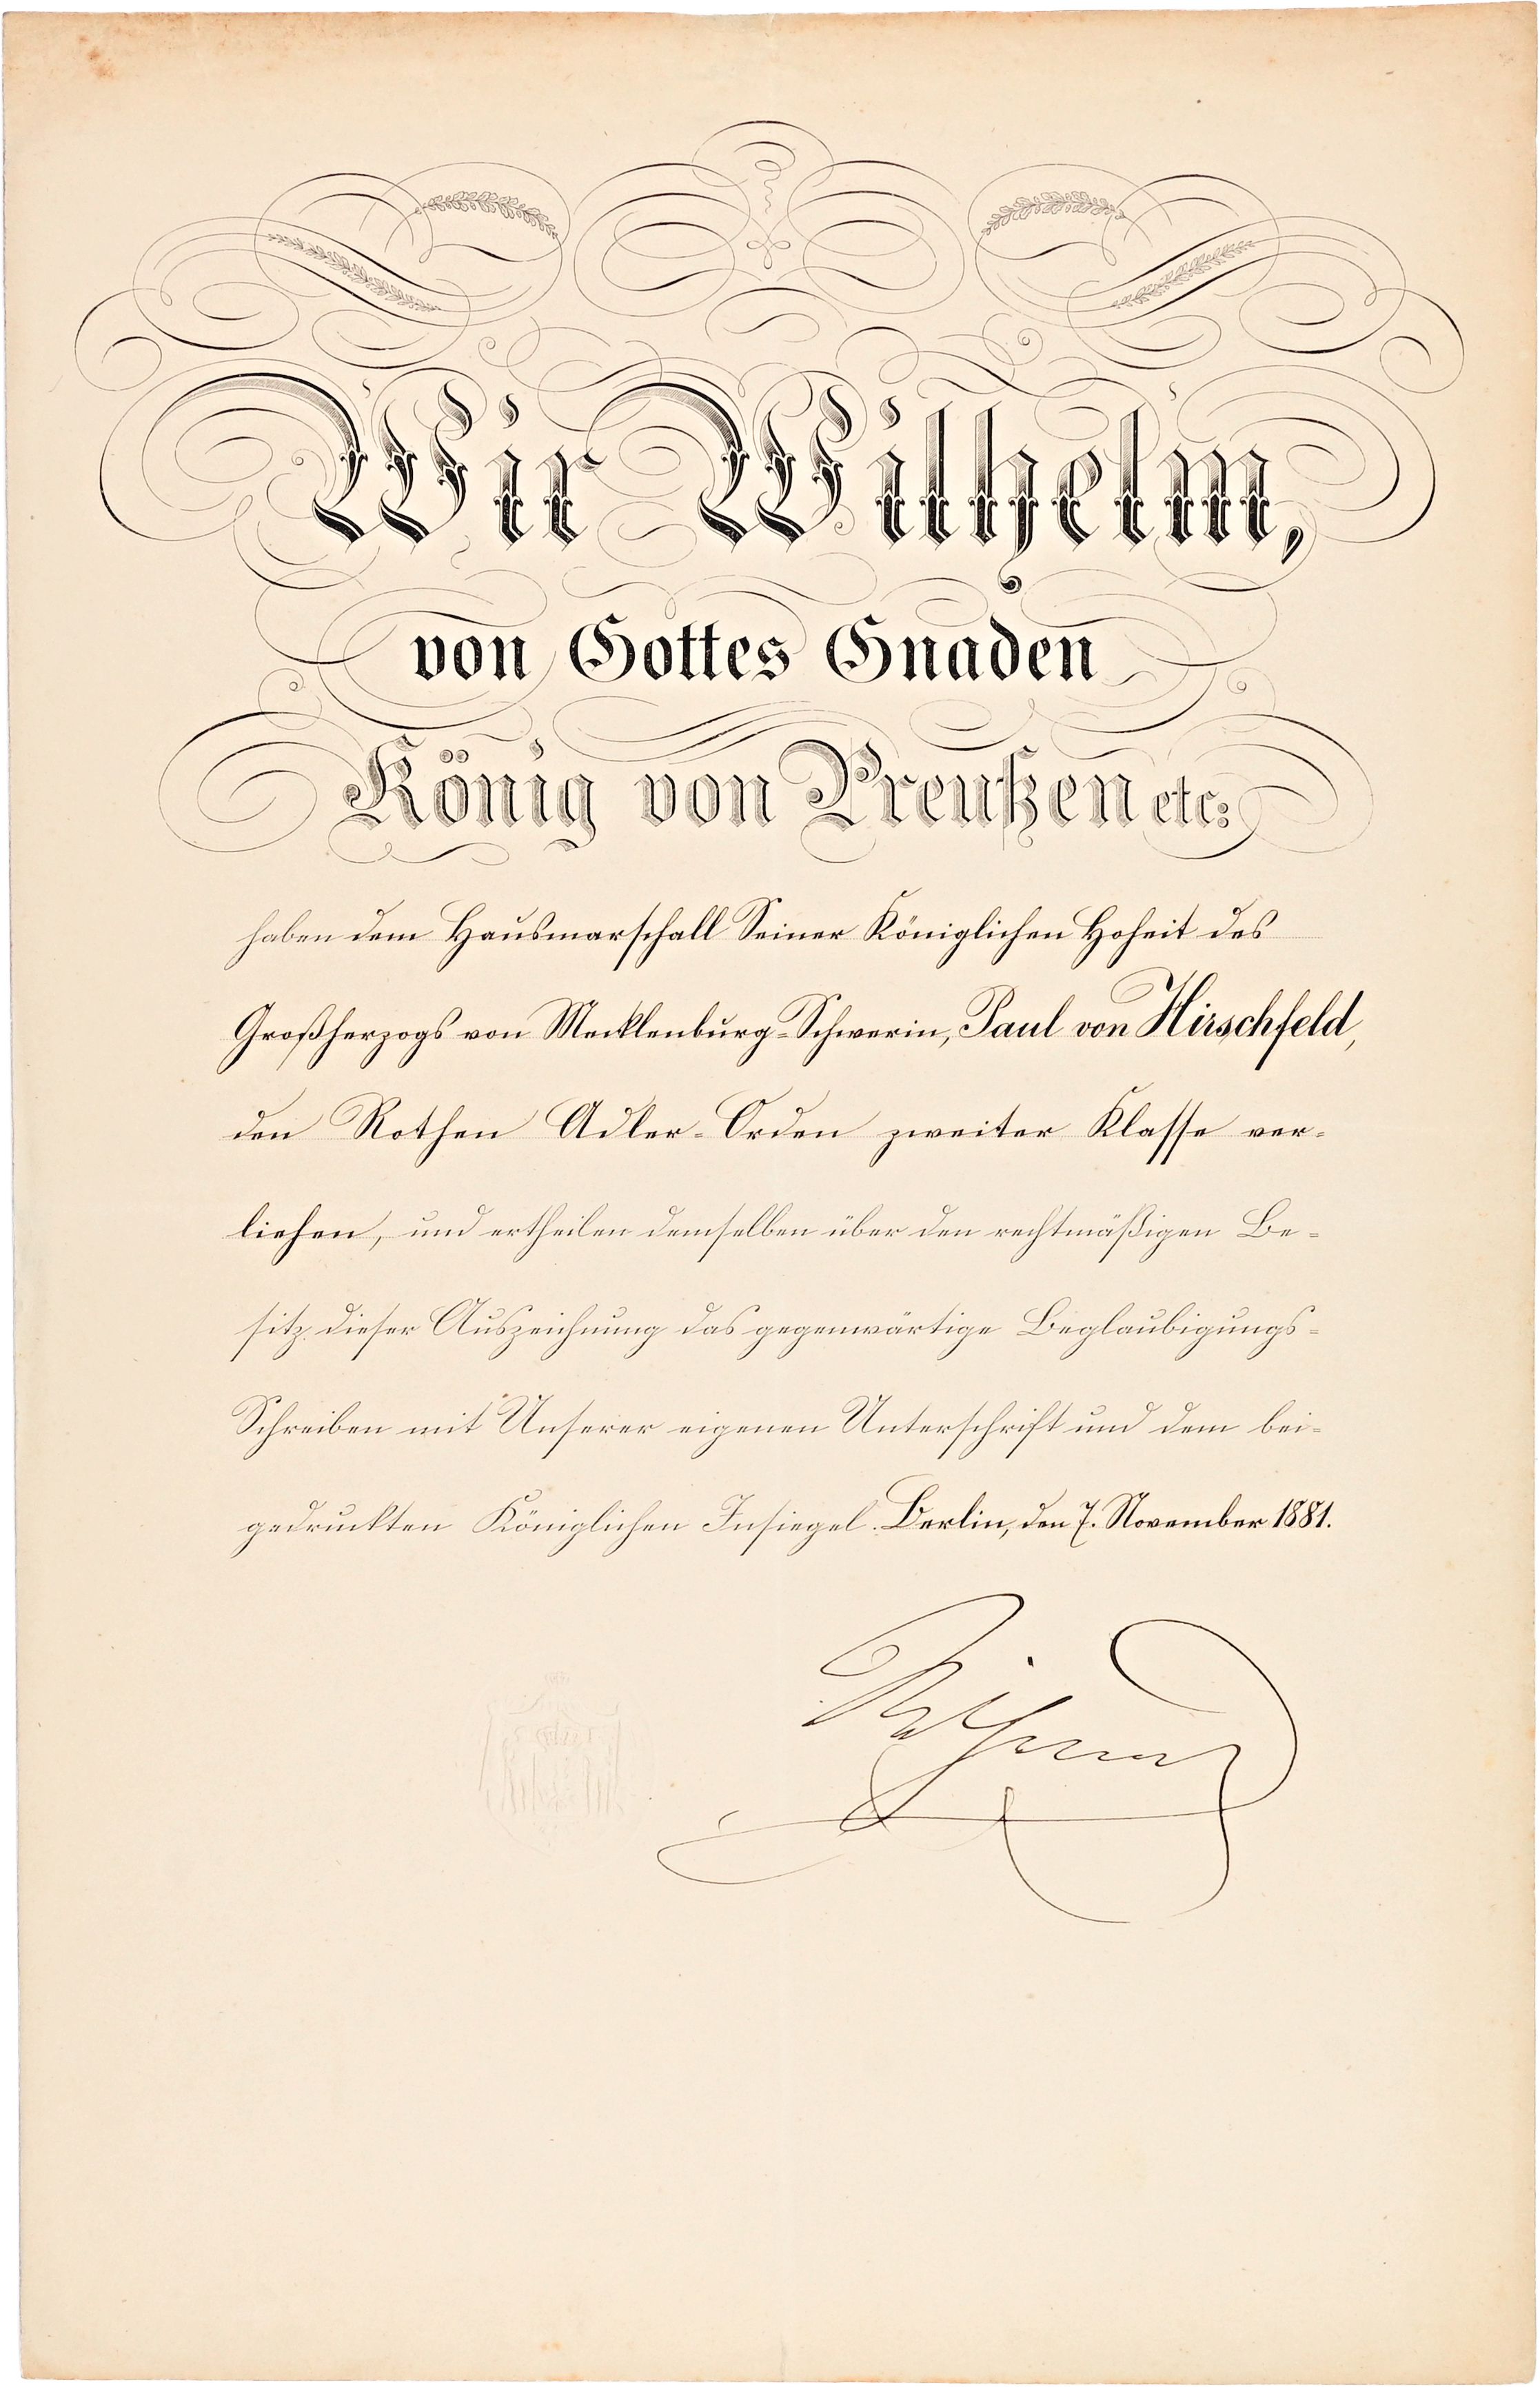 Wir Wilhelm,
von Gottes Gnaden
König von Preußen etc:
haben dem Hausmarschall Seiner Königlichen Hoheit des
Großherzogs von Mecklenburg-Schwerin, Paul von Hirschfeld,
den Rothen Adler-Orden zweiter Klasse ver-
liehen, und ertheilen demselben über den rechtmäßigen Be-
sitz dieser Auszeichnung das gegenwärtige Beglaubigungs-
Schreiben mit Unserer eigenen Unterschrift und dem bei-
gedruckten Königlichen Insiegel. Berlin, den 7. November 1881.
Wilhelm